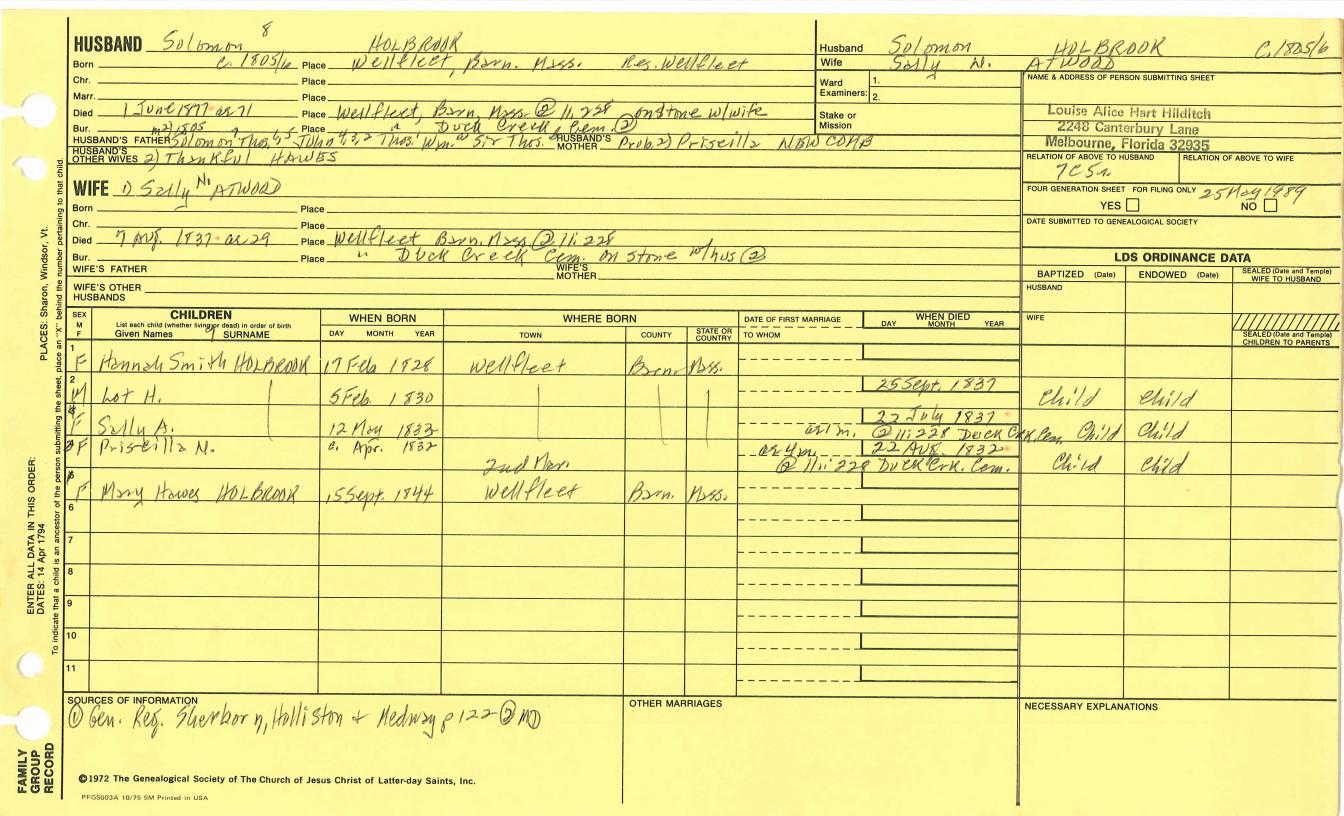 HUSBAND Solomon 8 HOLBROOK
Born c. 1805/6 Place Wellfleet, Barn. Mass. Res. Wellfleet
Chr. Place
Marr. Place
Died 1 June 1877 ae 71 Place Wellfleet, Barn. Mass. ② 11:228 on stone w/wife
Bur. Place " Duck Creek Cem. ②
HUSBAND'S FATHER Solomon Thos. John Thos. Wm. Sir Thos. HUSBAND'S MOTHER Prob. 2) Priscilla NEWCOMB
m2) 1805
HUSBAND'S OTHER WIVES 2) Thankful HAWES
WIFE 1) Sally N. ATWOOD
Born Place
Chr. Place
Died 7 Aug. 1837 ae 29 Place Wellfleet Barn. Mass. ② 11:228
Bur. Place " Duck Creek Cem. on stone w/hus ②
WIFE'S FATHER WIFE'S MOTHER
WIFE'S OTHER HUSBANDS
Husband Solomon HOLBROOK C. 1805/6
Wife Sally N. ATWOOD
Ward Examiners: 1. 2.
Stake or Mission
NAME & ADDRESS OF PERSON SUBMITTING SHEET
Louise Alice Hart Hilditch
2248 Canterbury Lane
Melbourne, Florida 32935
RELATION OF ABOVE TO HUSBAND RELATION OF ABOVE TO WIFE
7C5r
FOUR GENERATION SHEET - FOR FILING ONLY 25 May 1989
YES NO
DATE SUBMITTED TO GENEALOGICAL SOCIETY
LDS ORDINANCE DATA
BAPTIZED (Date) ENDOWED (Date) SEALED (Date and Temple) WIFE TO HUSBAND
HUSBAND
WIFE
SEALED (Date and Temple) CHILDREN TO PARENTS
SEX M F CHILDREN List each child (whether living or dead) in order of birth Given Names 9 SURNAME
WHEN BORN DAY MONTH YEAR
WHERE BORN TOWN COUNTY STATE OR COUNTRY
DATE OF FIRST MARRIAGE TO WHOM
WHEN DIED DAY MONTH YEAR
1 F Hannah Smith HOLBROOK 17 Feb 1828 Wellfleet Barn. Mass.
2 M Lot H. 5 Feb. 1830 25 Sept. 1837 Child Child
4 F Sally A. 12 May 1833 22 July 1837
ae 1 m. ② 11:228 Duck Crk. Cem. Child Child
3 F Priscilla N. c. Apr. 1832 ae 4 m. 22 Aug. 1832
② 11:228 Duck Crk. Cem. Child Child
2nd Mar.
5 F Mary Hawes HOLBROOK 15 Sept. 1844 Wellfleet Barn. Mass.
6
7
8
9
10
11
SOURCES OF INFORMATION
① Gen. Reg. Sherborn, Holliston + Medway p 122 ② MD
OTHER MARRIAGES
NECESSARY EXPLANATIONS
©1972 The Genealogical Society of The Church of Jesus Christ of Latter-day Saints, Inc.
PFGS003A 10/75 5M Printed in USA
FAMILY GROUP RECORD
ENTER ALL DATA IN THIS ORDER:
DATES: 14 Apr 1794
PLACES: Sharon, Windsor, Vt.
To indicate that a child is an ancestor of the person submitting the sheet, place an "X" behind the number pertaining to that child.